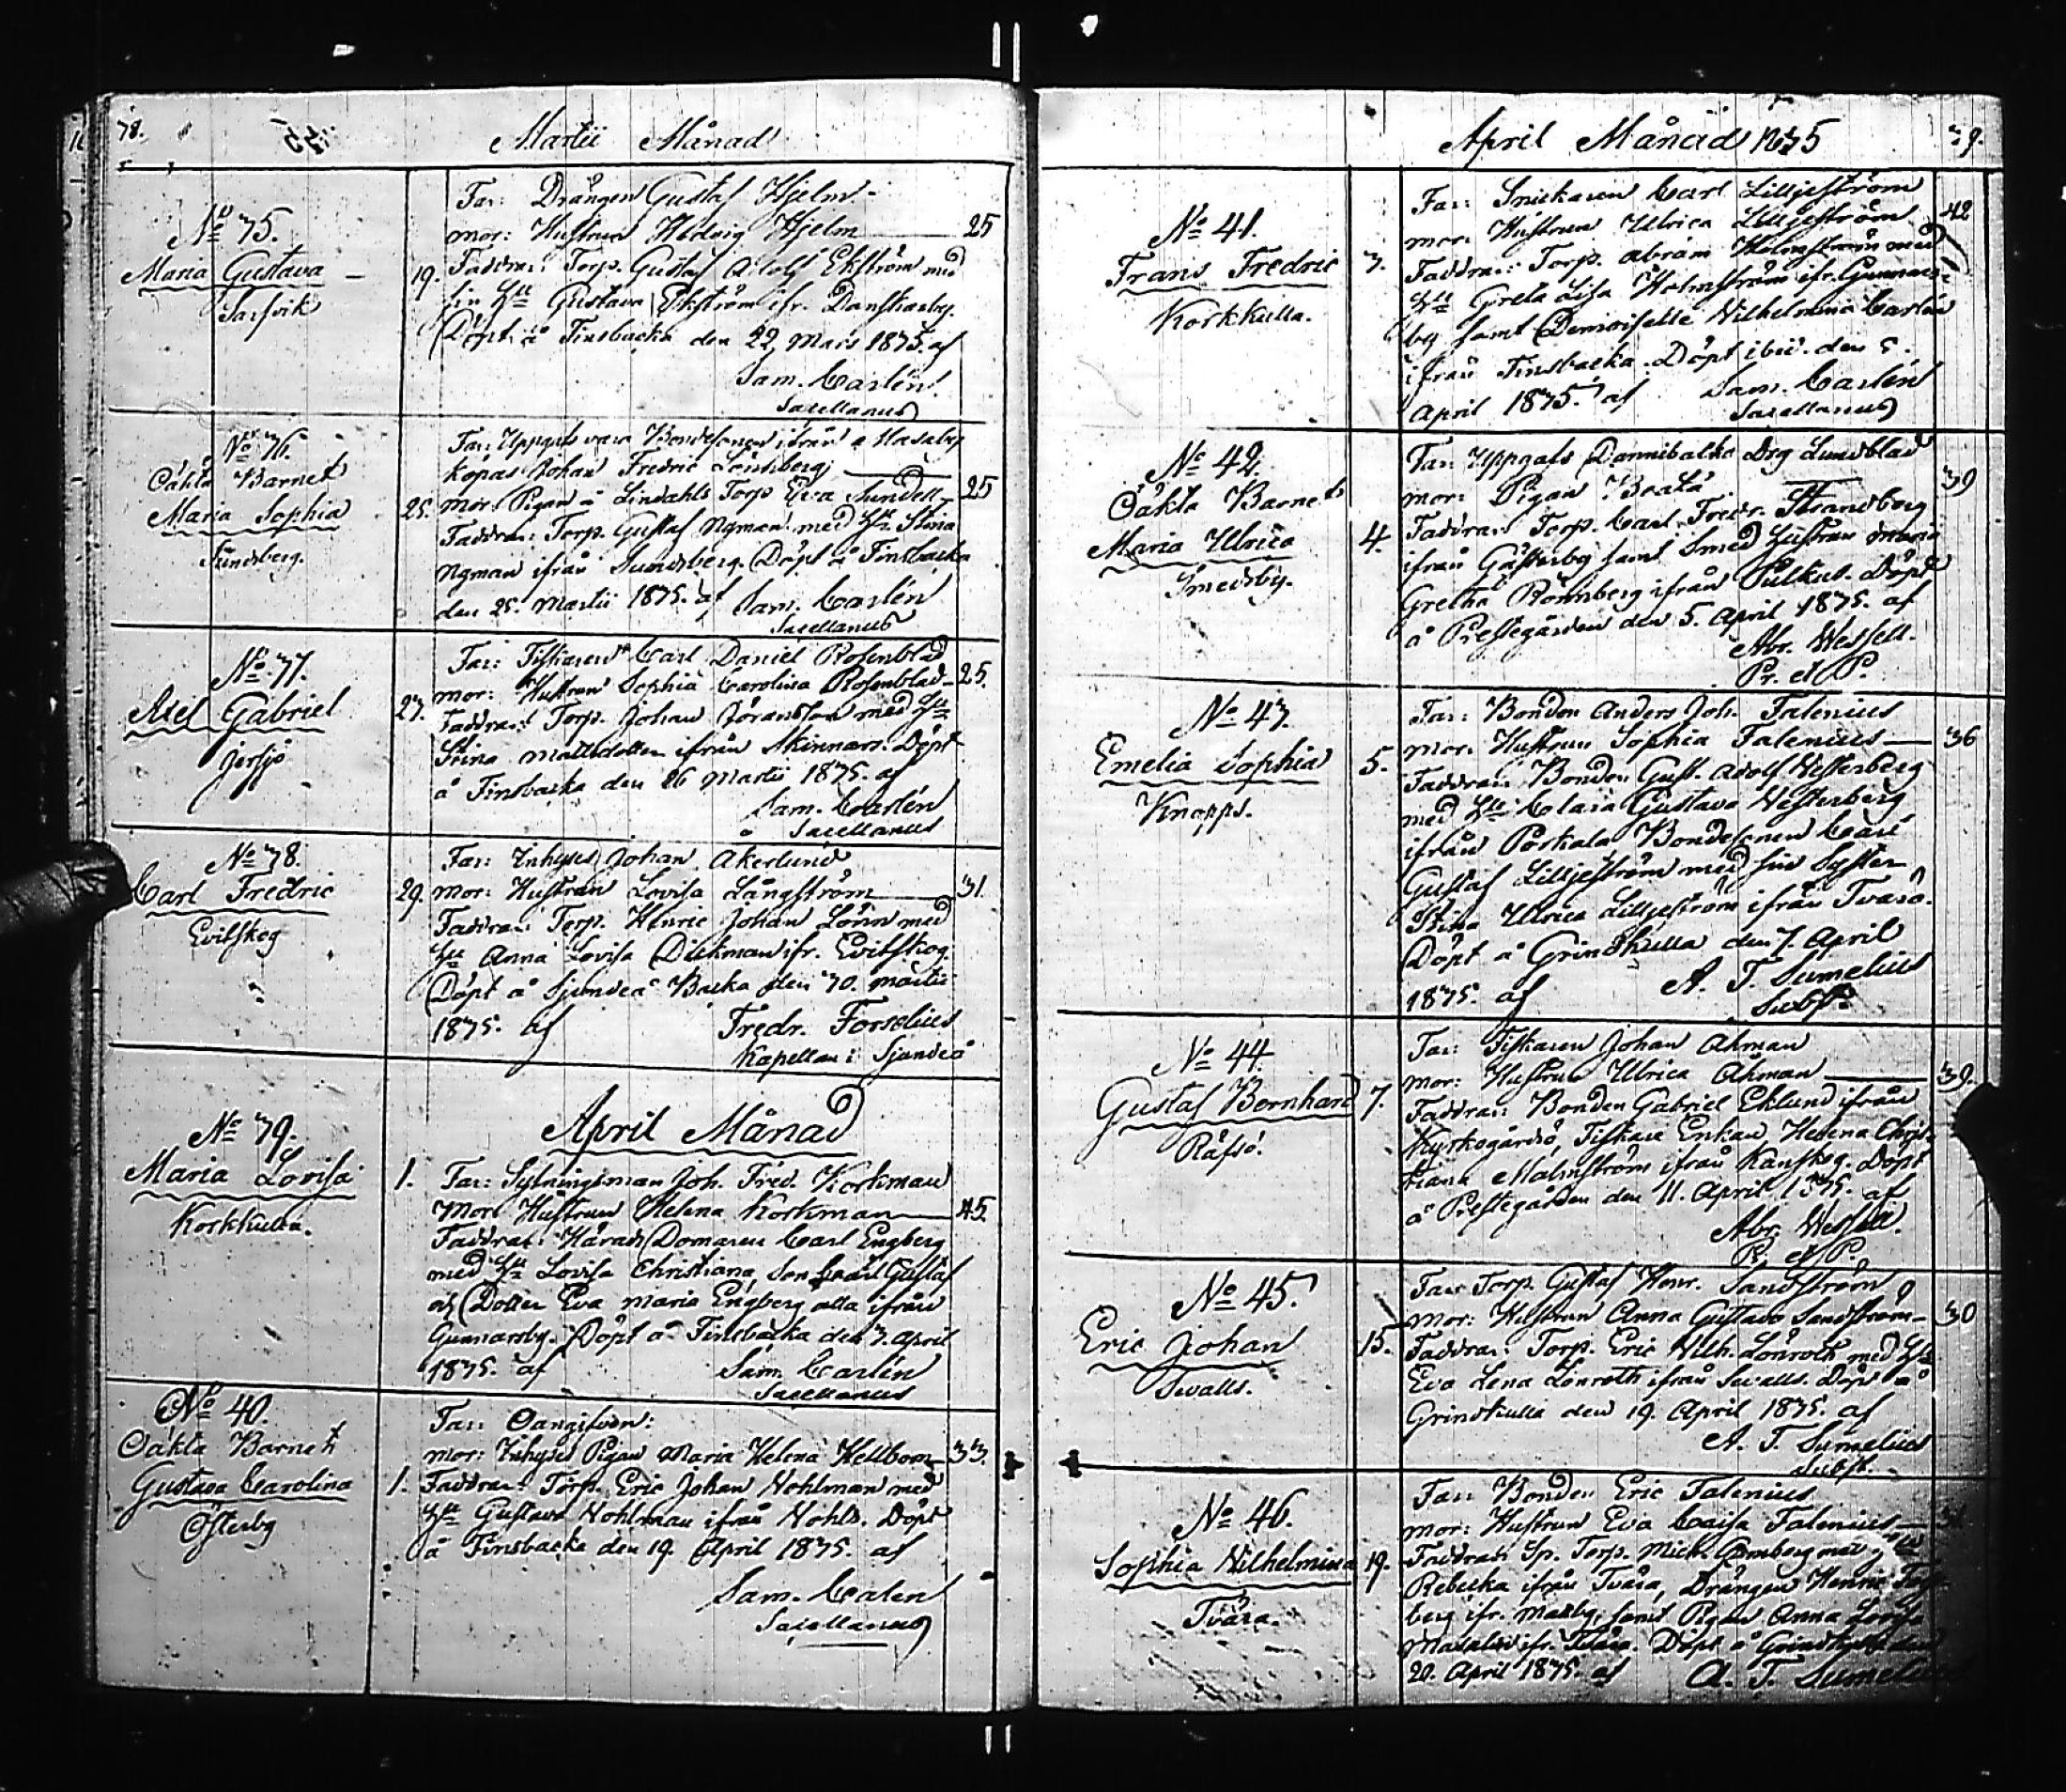 78.
Martii Månad
No 35.
Maria Gustava
Sarfvik
19.
Far: Drängen Gustaf Hjelm
mor: Hustrun Hedvig Hjelm 25
Faddrar: Torp. Gustaf Adolf Ekström med
sin Hu Gustava Ekström ifr. Danskarby.
Döpt å Finsbacka den 22 Mars 1835. af
Sam. Carlén
Sacellanus
No 36.
Oäkta Barnet
Maria Sophia
Sundsberg.
25.
Far: Uppgafs vara Bondesonen ifrån Masaby
Kopas Johan Fredric Lönnberg
mor: Pigan å Lindahls Torp Eva Sundell 25
Faddrar: Torp. Gustaf Nyman med Hu Stina
Nyman ifrån Sundsberg. Döpt å Finsbacka
den 25. Martii 1835. af Sam. Carlén
Sacellanus
No 37.
Axel Gabriel
Jorsjö
27.
Far: Fiskaren Carl Daniel Rosenblad
mor: Hustrun Sophia Carolina Rosenblad 25.
Faddrar: Torp. Johan Jöransson med Hu
Stina Mattsdotter ifrån Skinnars. Döpt
å Finsbacka den 26 Martii 1835. af
Sam. Carlén
Sacellanus
No 38.
Carl Fredric
Evitskog
29.
Far: Inhyses Johan Åkerlund
mor: Hustrun Lovisa Långström 31.
Faddrar: Torp. Henric Johan Lönn med
Hu Anna Lovisa Dickman ifr. Evitskog.
Döpt å Sjundeå Backa den 30. martii
1835. af Fredr. Forselius
Kapellan i Sjundeå
April Månad
No 39.
Maria Lovisa
Korkkulla.
1.
Far: Sytningsman Joh. Fred. Korkman
Mor: Hustrun Helena Korkman 45.
Faddrar: Härads Domaren Carl Engberg
med Hu Lovisa Christiana, Son Carl Gustaf
och Dotter Eva Maria Engberg alla ifrån
Gunnarsby. Döpt å Finsbacka den 3. April
1835. af Sam. Carlén
Sacellanus
No 40.
Oäkta Barnet
Gustava Carolina
Österby
1.
Far: Oangifven:
mor: Inhyses Pigan Maria Helena Hellbom 33.
Faddrar: Torp. Eric Johan Nohlman med
Hu Gustava Nohlman ifrån Nohls. Döpt
å Finsbacka den 19. April 1835. af
Sam. Calen
Sacellanus
April Månad 1835 39.
No 41.
Frans Fredric
Korkkulla.
3.
Far: Snickaren Carl Lilljeström
mor: Hustrun Ulrica Lilljeström 42
Faddrar: Torp. Abram Holmström med
Hu Greta Lisa Holmström ifr. Gunnars-
by samt Demoiselle Wilhelmina Carlén
ifrån Finsbacka. Döpt ibid. den 5.
April 1835. af Sam. Carlén
Sacellanus
No 42.
Oäkta Barnet
Maria Ulrica
Smedsby.
4.
Far: Uppgafs Dannibalka Drg Lundblad
mor: Pigan Beata 39
Faddrar: Torp. Carl Fredr. Strandberg
ifrån Gästerby samt Smed Hustrun Maria
Gretha Rönnberg ifrån Pulkus. Döpt
å Prestegården den 5. April 1835. af
Abr. Wessell.
Pr. et P.
No 43.
Emelia Sophia
Knapps.
5.
Far: Bonden Anders Joh. Falenius
mor: Hustrun Sophia Falenius 36
Faddrar: Bonden Gust. Adolf Westerberg
med Hu Clara Gustava Westerberg
ifrån Porkala Bondesonen Carl
Gustaf Lilljeström med sin Syster
Stina Ulrica Lilljeström ifrån Tvarö.
Döpt å Grindkulla den 7. April
1835. af A. T. Sumelius
Subst.
No 44.
Gustaf Bernhard
Räfsö.
7.
Far: Fiskaren Johan Åhman
mor: Hustrun Ulrica Åhman 39.
Faddrar: Bonden Gabriel Eklund ifrån
Kyrkogårdsö, Fiskare Enkan Helena Chris-
tiana Malmström ifrån Kanskog. Döpt
å Prestegården den 11. April 1835. af
Abr. Wessell.
Pr. et P.
No 45.
Eric Johan
Swalls.
15.
Far: Torp. Gustaf Henr. Sandström
mor: Hustrun Anna Gustava Sandström 30
Faddrar: Torp. Eric Wilh. Lönroth med Hu
Eva Lena Lönroth ifrån Swalls. Döpt å
Grindkulla den 19. April 1835. af
A. T. Sumelius
Subst.
No 46.
Sophia Wilhelmina
Tvära.
19.
Far: Bonden Eric Falenius
mor: Hustrun Eva Caisa Falenius
Faddrar: Sp. Torp. Mich. med Hu
Rebecka ifrån Tvära, Drängen Henric
berg ifr. Masby, samt Pigan Anna Lovisa
ifr. Tvära. Döpt å Grindkulla den
20. April 1835. af A. T. Sumelius